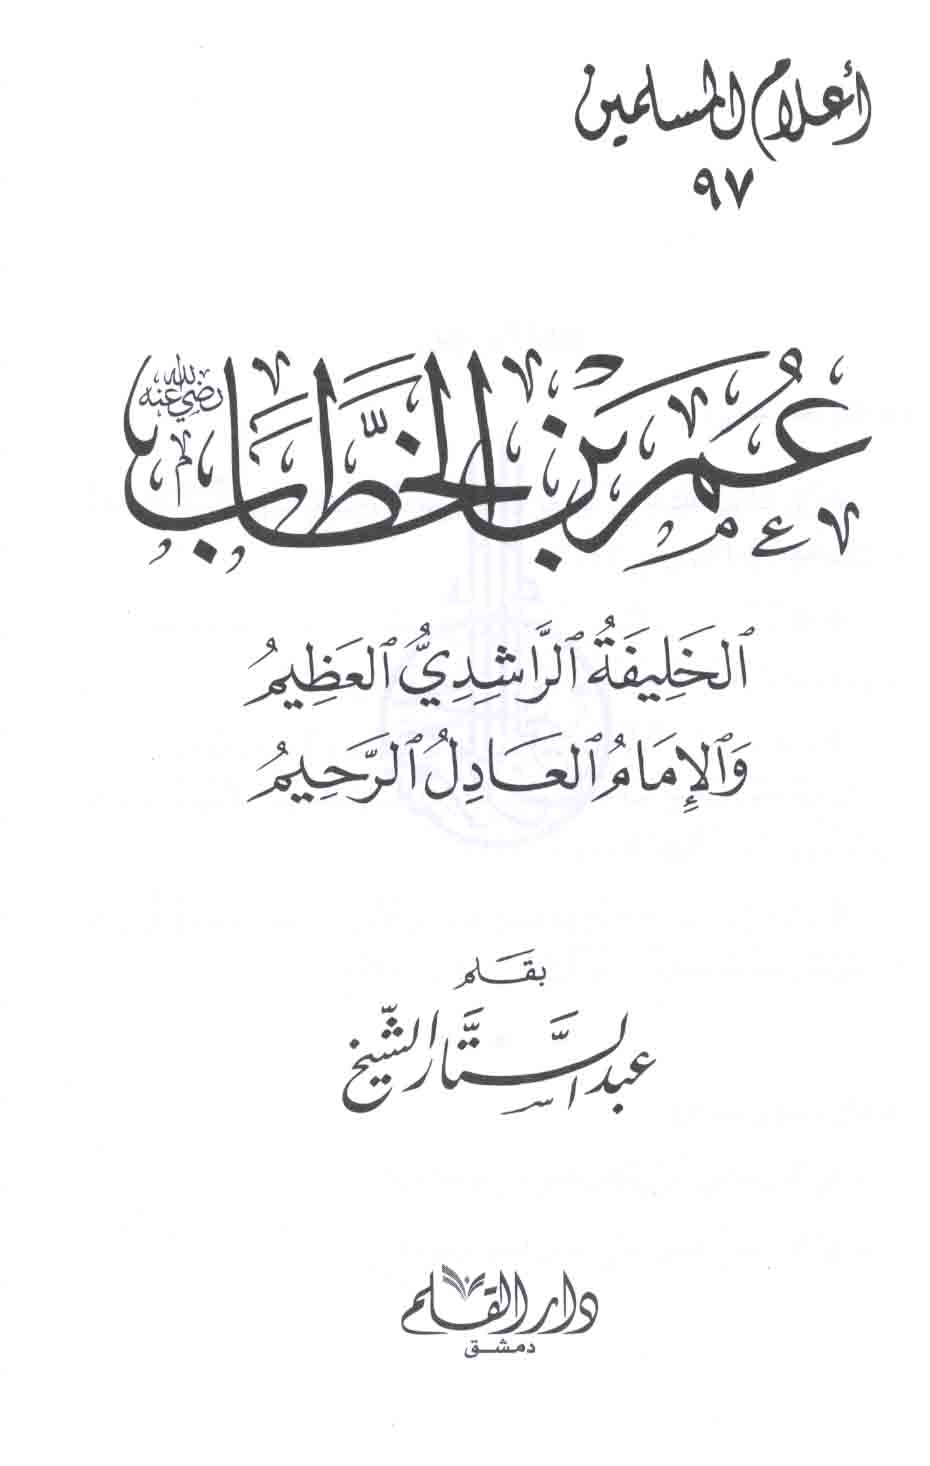 أعلام المسلمين
٩٧
عُمَر بْن الخَطَّاب رضي الله عنه
الخَلِيفَةُ الرَّاشِدِيُّ العَظِيمُ
وَالإِمَامُ العَادِلُ الرَّحِيمُ
بقلم
عبد السَّتَّار الشَّيخ
دار القلم
دمشق